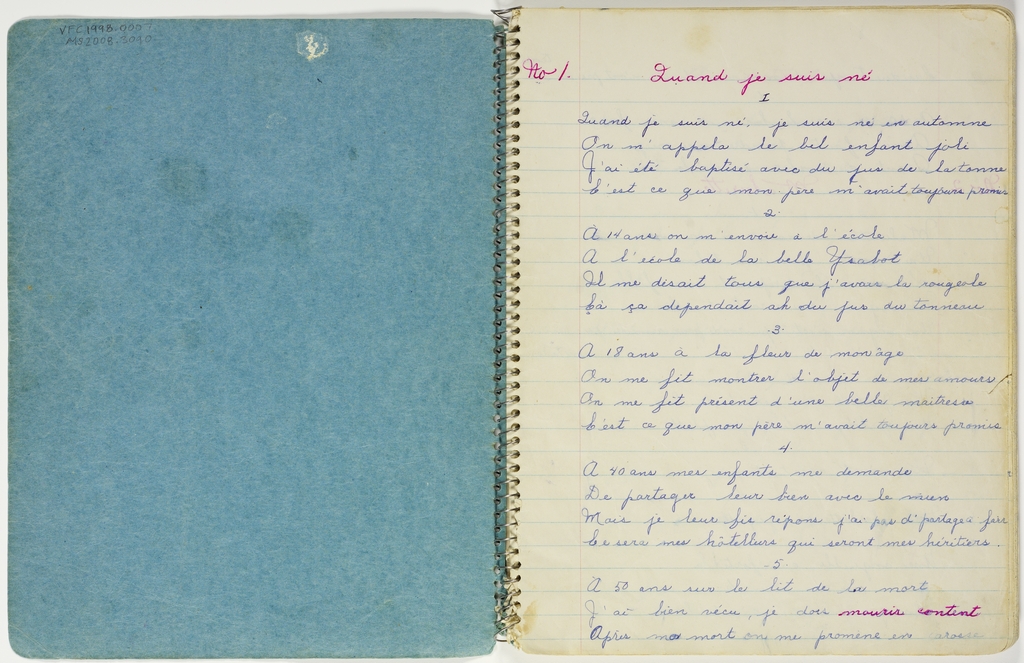 VFC1998-0007
MS2008-5040
No 1. Quand je suis né
I
Quand je suis né, je suis né en automne
On m'appela le bel enfant joli
J'ai été baptisé avec du jus de la tonne
C'est ce que mon père m'avait toujours promis
2
À 14 ans on m'envoie à l'école
A l'école de la belle Ysabot
Il me disait tous que j'avais la rougeole
Cà ça dependait ah du jus du tonneau
3
A 18 ans à la fleur de mon âge
On me fit montrer l'objet de mes amours
On me fit présent d'une belle maitresse
C'est ce que mon père m'avait toujours promis
4
A 40 ans mes enfants me demande
De partager leur bien avec le mien
Mais je leur fis répons j'ai pas d'partagea faire
Ce sera mes hôtelliers qui seront mes héritiers.
5
A 50 ans sur le lit de la mort
J'ai bien vécu, je dois mourir content
Après ma mort on me promène en